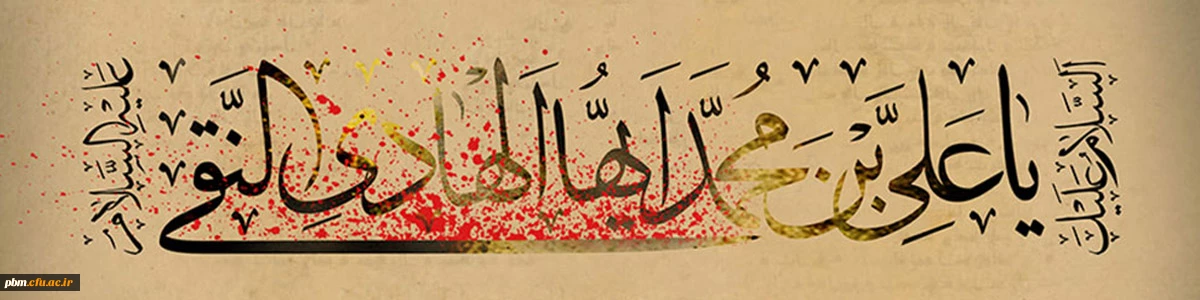 السَّلامُ عَلَیکَ
یا عَلِیَّ بْنَ مُحَمَّدٍ اَیُّهَا الْهادِی النَّقی
عَلَیهِ السَّلام
pbm.cfu.ac.ir